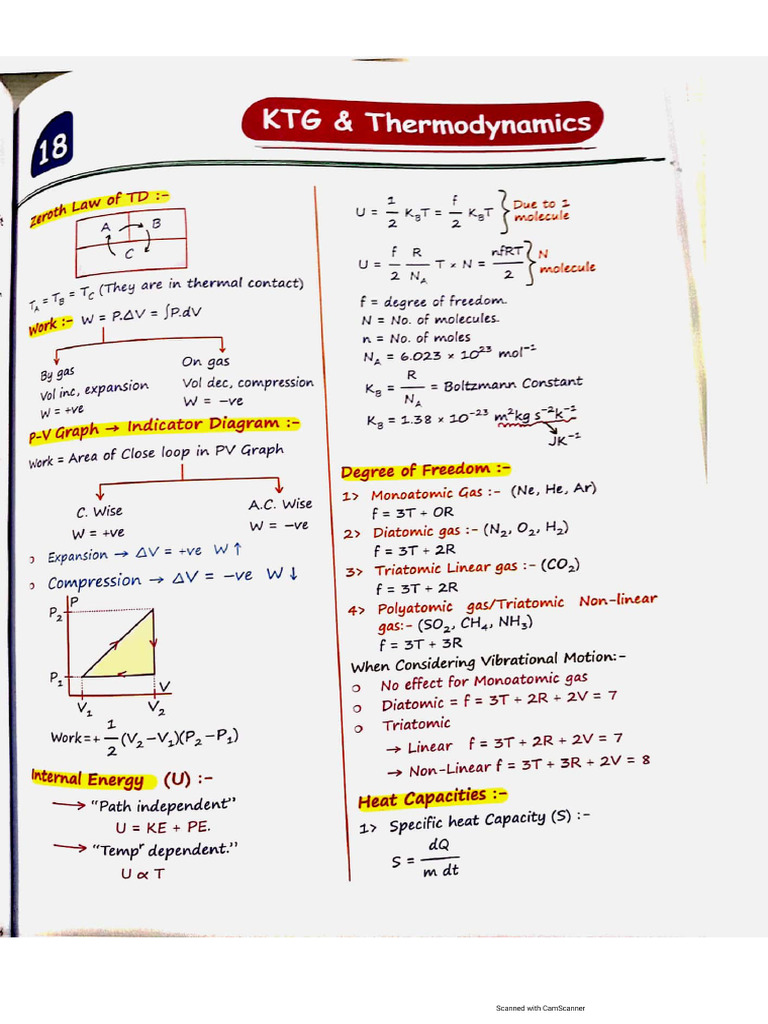 18
KTG & Thermodynamics
Zeroth Law of TD :-
A B
C
T_A = T_B = T_C (They are in thermal contact)
Work :- W = P.ΔV = ∫P.dV
By gas
Vol inc, expansion
W = +ve
On gas
Vol dec, compression
W = −ve
P-V Graph → Indicator Diagram :-
Work = Area of Close loop in PV Graph
C. Wise
W = +ve
A.C. Wise
W = −ve
Expansion → ΔV = +ve W ↑
Compression → ΔV = −ve W ↓
P
P₂
P₁
V
V₁ V₂
Work=+ 1/2 (V₂ −V₁)(P₂ −P₁)
Internal Energy (U) :-
→ "Path independent"
U = KE + PE.
→ "Tempʳ dependent."
U ∝ T
U = 1/2 K_BT = f/2 K_BT } Due to 1 molecule
U = f/2 R/N_A T × N = nfRT/2 } N molecule
f = degree of freedom.
N = No. of molecules.
n = No. of moles
N_A = 6.023 × 10²³ mol⁻¹
K_B = R/N_A = Boltzmann Constant
K_B = 1.38 × 10⁻²³ m²kg s⁻²k⁻¹
JK⁻¹
Degree of Freedom :-
1> Monoatomic Gas :- (Ne, He, Ar)
f = 3T + 0R
2> Diatomic gas :- (N₂, O₂, H₂)
f = 3T + 2R
3> Triatomic Linear gas :- (CO₂)
f = 3T + 2R
4> Polyatomic gas/Triatomic Non-linear
gas:- (SO₂, CH₄, NH₃)
f = 3T + 3R
When Considering Vibrational Motion:-
No effect for Monoatomic gas
Diatomic = f = 3T + 2R + 2V = 7
Triatomic
→ Linear f = 3T + 2R + 2V = 7
→ Non-Linear f = 3T + 3R + 2V = 8
Heat Capacities :-
1> Specific heat Capacity (S) :-
S = dQ/m dt
Scanned with CamScanner